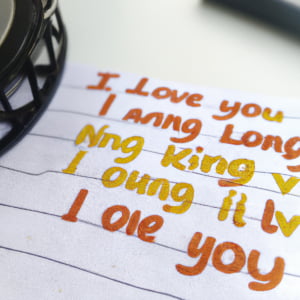 I Love you
I Anng Long
Nng King v
I oung ii lv
I ole yoy